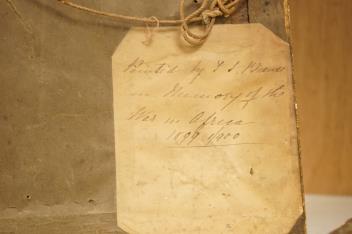 Painted by T J
in Memory of the
War in Africa
1899 1900